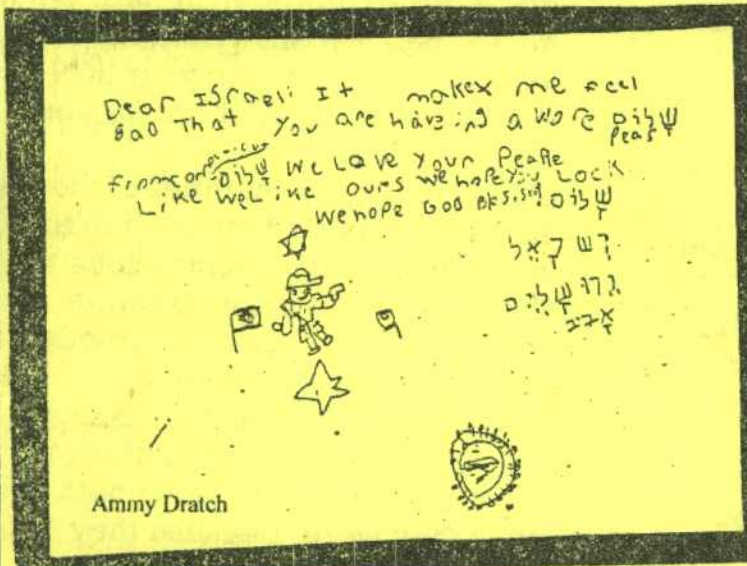 Dear ISraeli It makex me feel
BaD That You are haveing a Wore שָׁלוֹם
Peas
from שָׁלוֹם We LOVE Your PeaPle
Like WeLike ours we hope You LOCK
We hope GOD שָׁלוֹם
יִשְׂרָאֵל
יְרוּשָׁלַיִם
Ammy Dratch